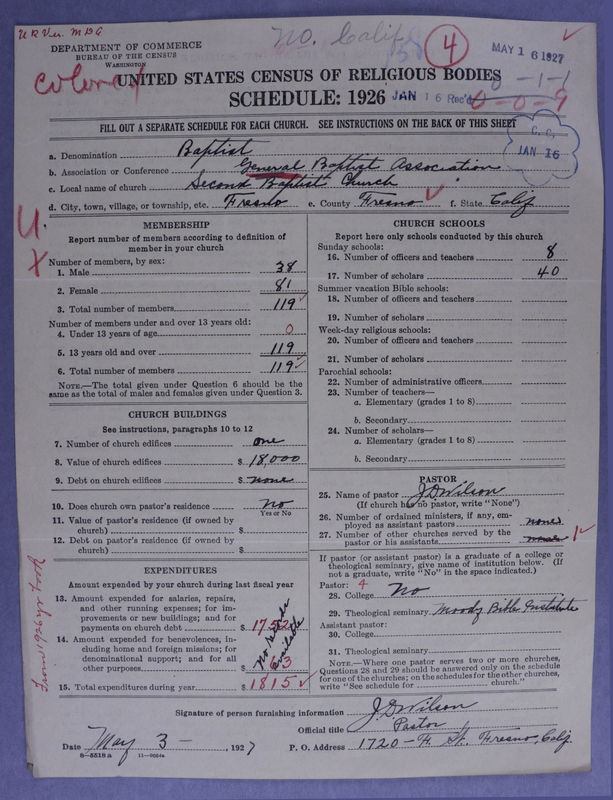 U R Ver. M B G
DEPARTMENT OF COMMERCE
BUREAU OF THE CENSUS
WASHINGTON
No. Calif
4
MAY 16 1927
Colored
UNITED STATES CENSUS OF RELIGIOUS BODIES
0-1-1
SCHEDULE: 1926
JAN 16 Rec'd
0-0-9
FILL OUT A SEPARATE SCHEDULE FOR EACH CHURCH. SEE INSTRUCTIONS ON THE BACK OF THIS SHEET
C. C.
JAN 15
a. Denomination Baptist
b. Association or Conference General Baptist Association
c. Local name of church Second Baptist Church
d. City, town, village, or township, etc. Fresno e. County Fresno f. State Calif
U
X
MEMBERSHIP
Report number of members according to definition of
member in your church
Number of members, by sex:
1. Male 38
2. Female 81
3. Total number of members 119
Number of members under and over 13 years old:
4. Under 13 years of age 0
5. 13 years old and over 119
6. Total number of members 119
NOTE.—The total given under Question 6 should be
same as the total of males and females given under Question 3.
CHURCH BUILDINGS
See instructions, paragraphs 10 to 12
7. Number of church edifices one
8. Value of church edifices $ 18,000
9. Debt on church edifices $ none
10. Does church own pastor's residence No
Yes or No
11. Value of pastor's residence (if owned by
church) $
12. Debt on pastor's residence (if owned by
church) $
EXPENDITURES
Amount expended by your church during last fiscal year
13. Amount expended for salaries, repairs,
and other running expenses; for im-
provements or new buildings; and for
payments on church debt $ 1752
14. Amount expended for benevolences, in-
cluding home and foreign missions; for
denominational support; and for all
other purposes 63
No records
available
15. Total expenditures during year $ 1815
From 1926 yr. book
CHURCH SCHOOLS
Report here only schools conducted by this church
Sunday schools:
16. Number of officers and teachers 8
17. Number of scholars 40
Summer vacation Bible schools:
18. Number of officers and teachers
19. Number of scholars
Week-day religious schools:
20. Number of officers and teachers
21. Number of scholars
Parochial schools:
22. Number of administrative officers
23. Number of teachers—
a. Elementary (grades 1 to 8)
b. Secondary
24. Number of scholars—
a. Elementary (grades 1 to 8)
b. Secondary
PASTOR
25. Name of pastor J. D. Wilson
(If church has no pastor, write "None")
26. Number of ordained ministers, if any, em-
ployed as assistant pastors none
27. Number of other churches served by the
pastor or his assistants none 1
If pastor (or assistant pastor) is a graduate of a college or
theological seminary, give name of institution below. (If
not a graduate, write "No" in the space indicated.)
Pastor: 4
28. College No
29. Theological seminary Moody Bible Institute
Assistant pastor:
30. College
31. Theological seminary
NOTE.—Where one pastor serves two or more churches,
Questions 28 and 29 should be answered only on the schedule
for one of the churches; on the schedules for the other churches,
write "See schedule for church."
Signature of person furnishing information J. D. Wilson
Official title Pastor
Date May 3 -, 1927 P. O. Address 1720 - F. St. Fresno, Calif.
8-5518 a 11-9054a